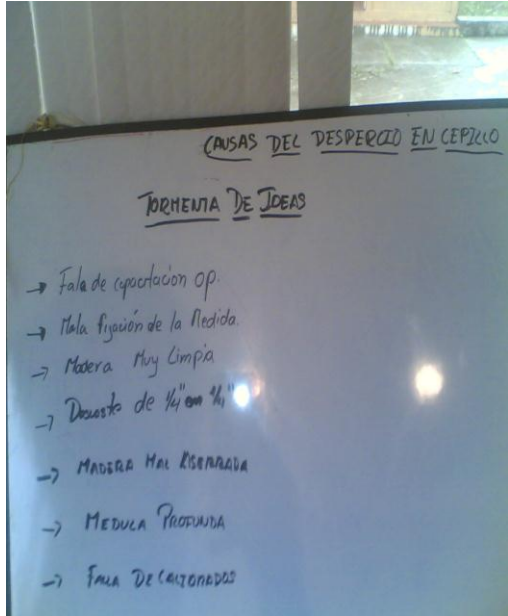 CAUSAS DEL DESPERCIO EN CEPILLO
TORMENTA DE IDEAS
→ Fala de capactacion op.
→ Mala fijación de la Medida.
→ Madera Muy Limpia
→ de 1/4"
→ MADERA MAL ASERRADA
→ MEDULA PROFUNDA
→ FALLA DE